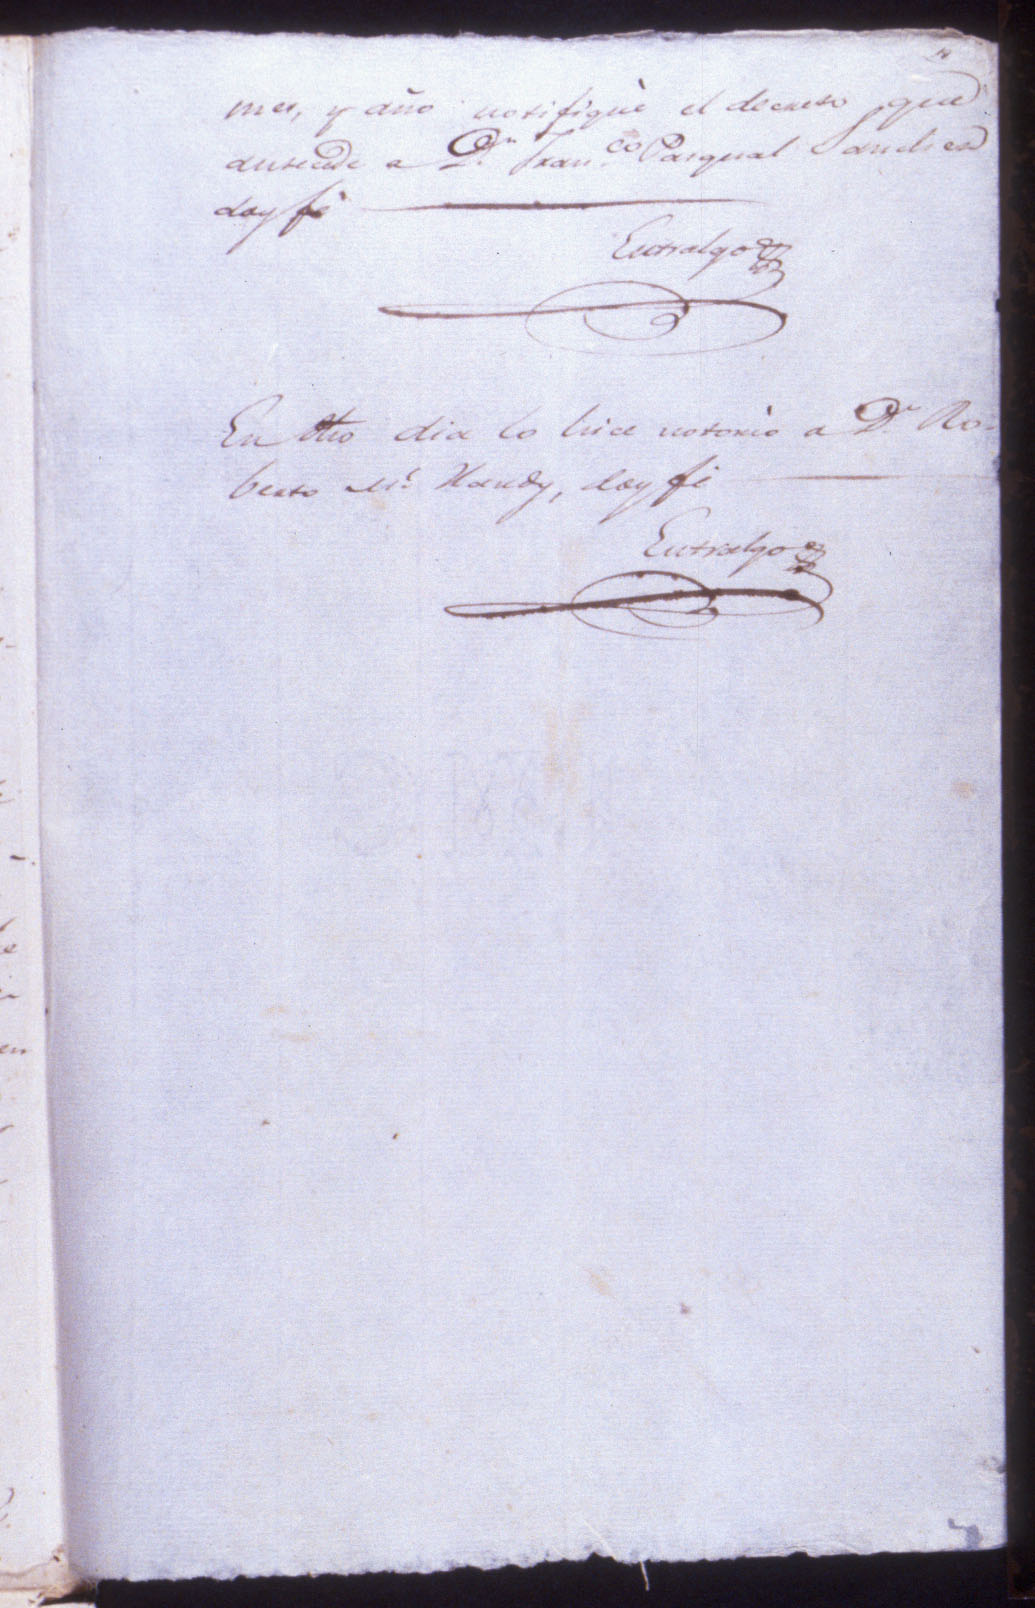 mes, y año notifiquè el decreto que
antecede a Dn. Franco. Pasqual Sanchez
doy fè
Entralgo
En dho dia lo hice notorio a Dn. Ro-
berto Mc. Hardy, doy fè
Entralgo